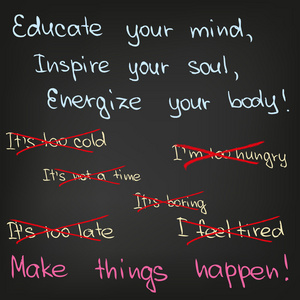 Educate your mind,
Inspire your soul,
Energize your body!
It's too cold
I'm too hungry
It's not a time
It's boring
It's too late
I feel tired
Make things happen!